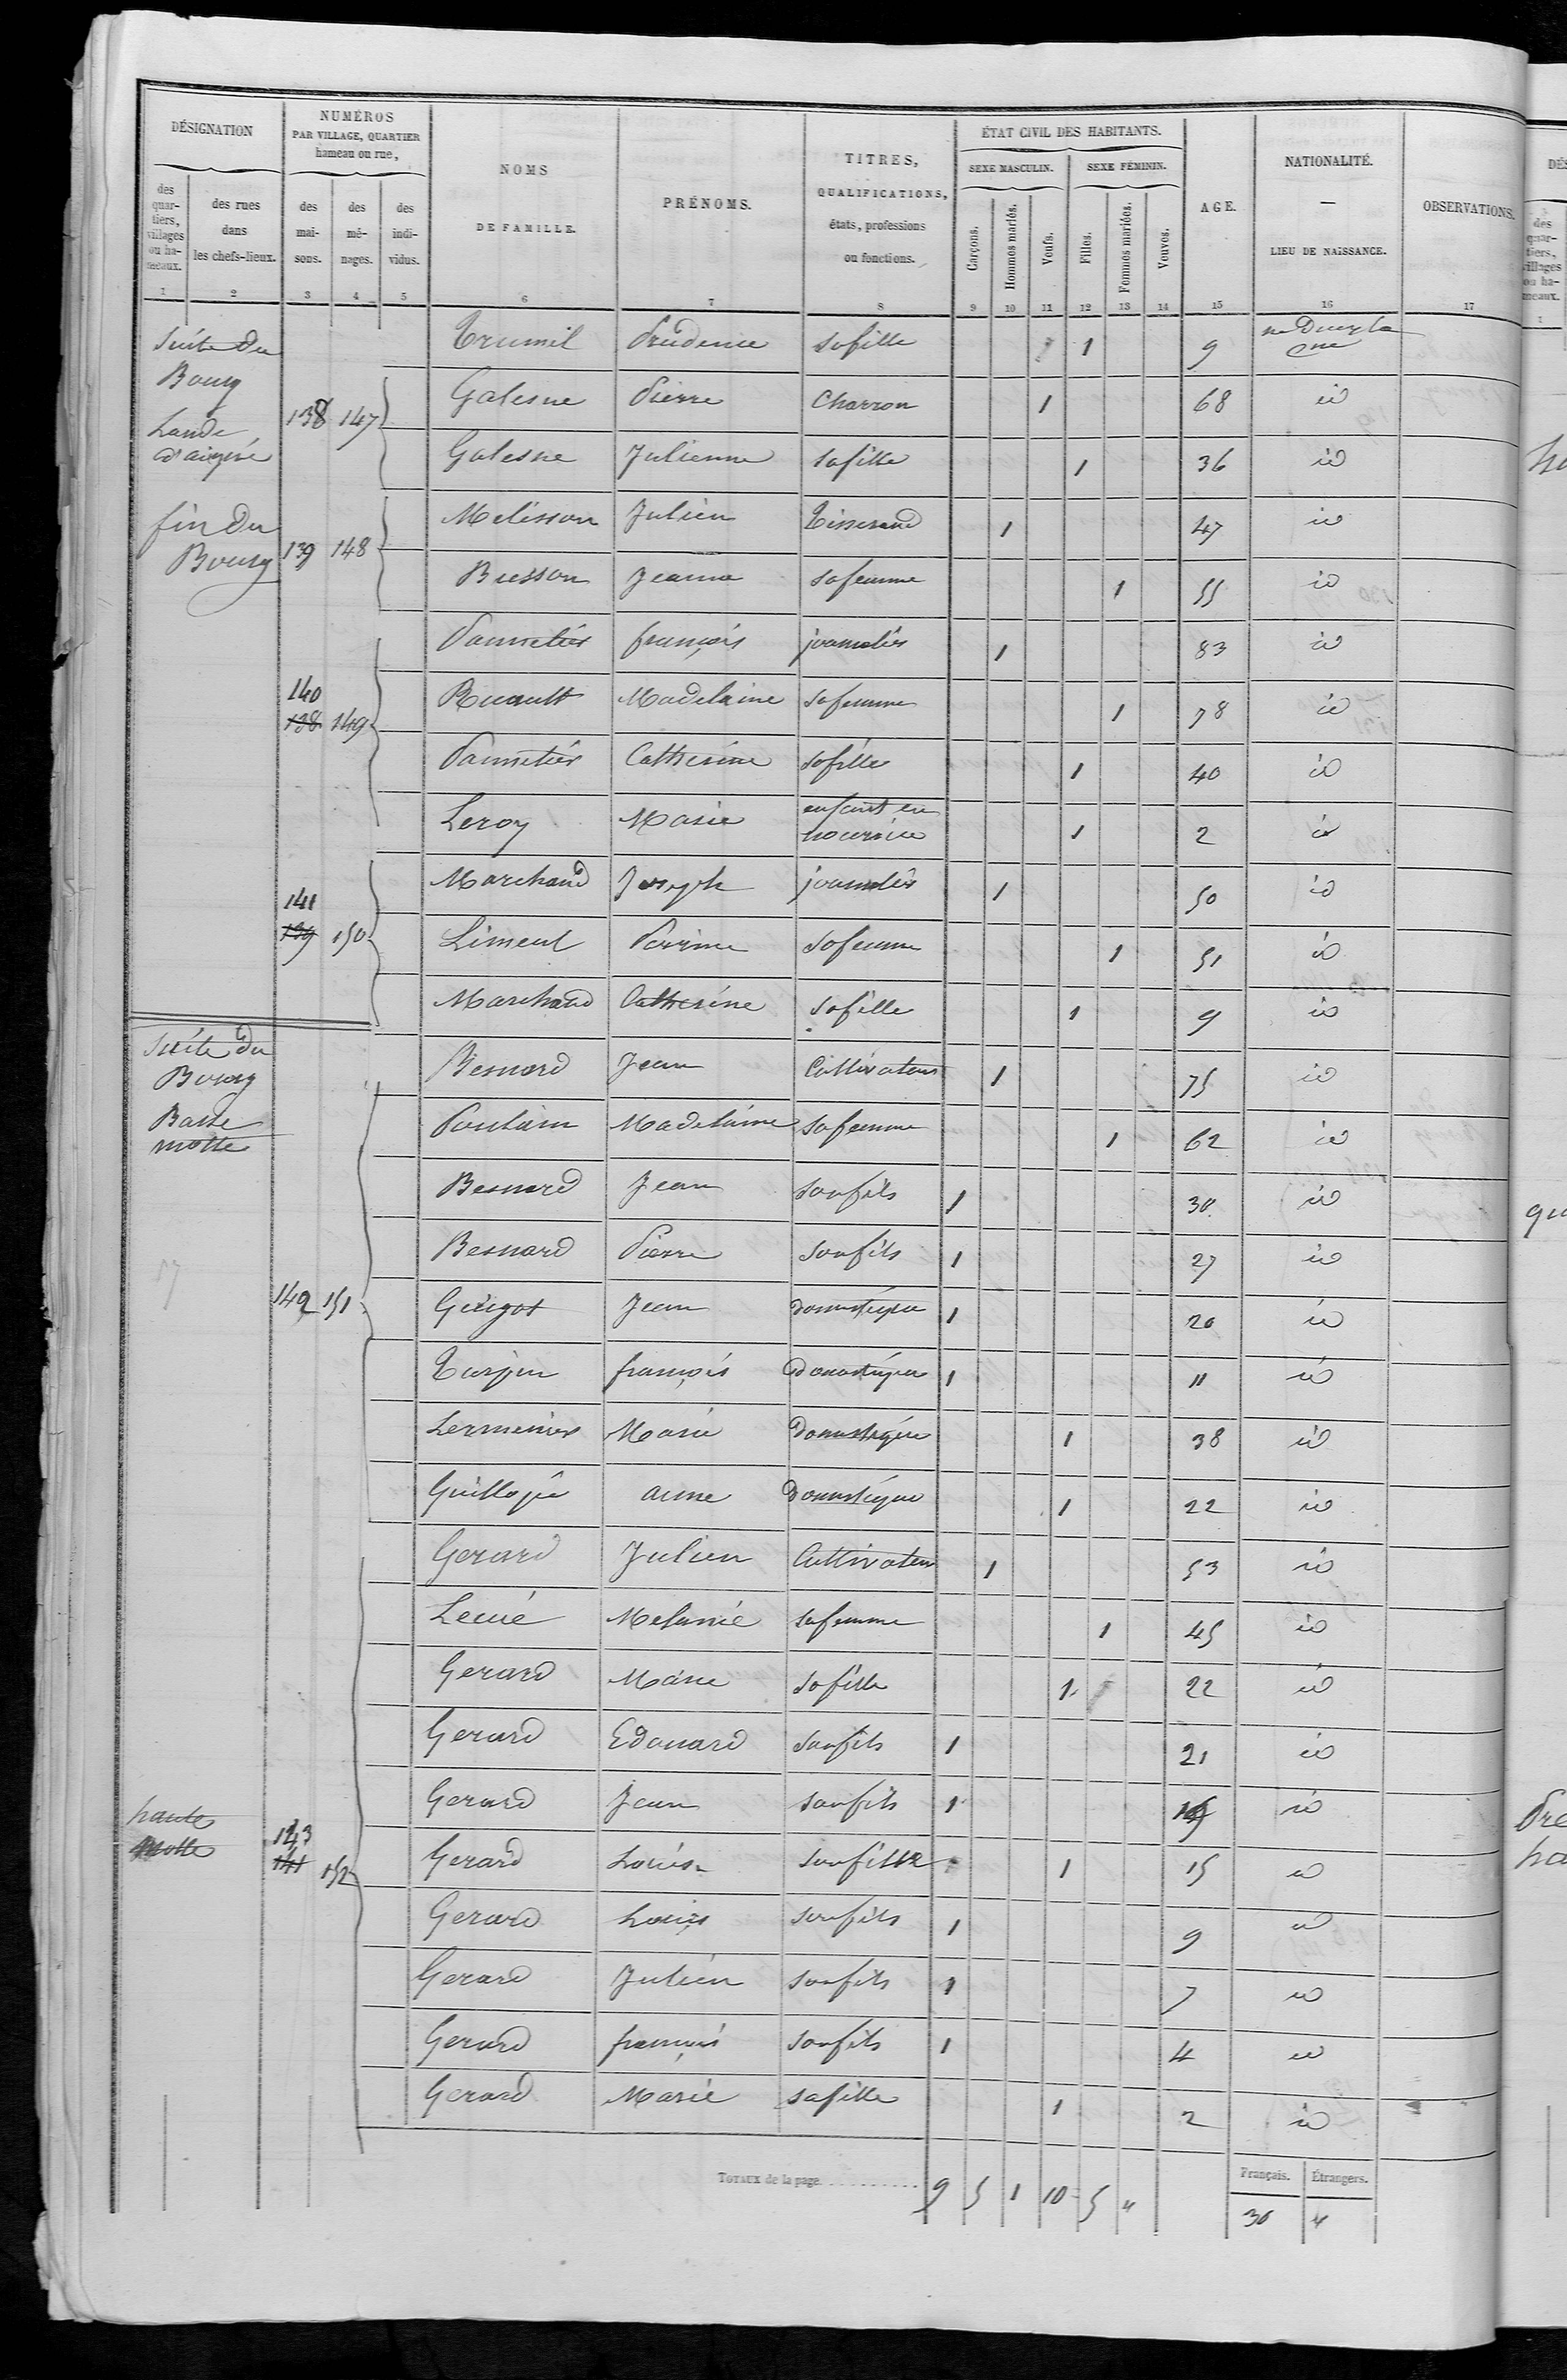 DÉSIGNATION
NUMÉROS
PAR VILLAGE, QUARTIER
hameau ou rue,
NOMS
DE FAMILLE.
PRÉNOMS.
TITRES,
QUALIFICATIONS,
états, professions
ou fonctions.
ÉTAT CIVIL DES HABITANTS.
SEXE MASCULIN. SEXE FÉMININ.
AGE.
NATIONALITÉ.
—
LIEU DE NAISSANCE.
OBSERVATIONS.
des quar-tiers, villages ou ha-meaux.
des rues dans les chefs-lieux.
des mai-sons.
des mé-nages.
des indi-vidus.
Garçons. Hommes mariés. Veufs. Filles. Femmes mariées. Veuves.
1 2 3 4 5 6 7 8 9 10 11 12 13 14 15 16 17
Suite du Bourg Prudence sa fille 1 9
138 147 Galesne Pierre Charron 1 68 id
Lande Galesne Julienne sa fille 1 36 id
fin du Bourg 139 148 Melisson Julien Tisserand 1 47 id
Busson Jeanne sa femme 1 55 id
Pannetier françois journalier 1 83 id
140 138 149 Ruault Madelaine sa femme 1 78 id
Pannetier Catherine sa fille 1 40 id
Leroy Marie enfant en nourrice 1 2 id
Marchand Joseph journalier 1 50 id
141 139 150 Limeul Perrine sa femme 1 51 id
Marchand Catherine sa fille 1 9 id
Suite du Bourg
Basse motte
Besnard Jean Cultivateur 1 75 id
Poulain Madelaine sa femme 1 62 id
Besnard Jean son fils 1 30 id
Besnard Pierre son fils 1 27 id
142 151 Guigot Jean domestique 1 20 id
françois domestique 1 11 id
Marie domestique 1 38 id
anne domestique 1 22 id
Gerard Julien Cultivateur 1 53 id
Melanie sa femme 1 45 id
Gerard Marie sa fille 1 22 id
Gerard Edouard son fils 1 21 id
haute motte Gerard Jean son fils 1 id
143 141 152 Gerard Louise 1 15 id
Gerard Louis son fils 1 9 id
Gerard Julien son fils 1 7 id
Gerard françois son fils 1 4 id
Gerard Marie sa fille 1 2 id
TOTAUX de la page 9 5 1 10 5 "
Français. Étrangers.
30 "